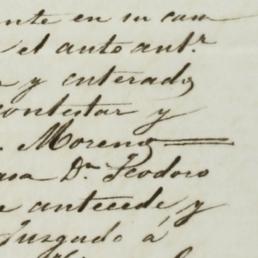 nte en su cam
el auto antr.
a y enterado
contestar y
. Moreno
asa Dn. Teodoro
e antecede, y
Juzgado á